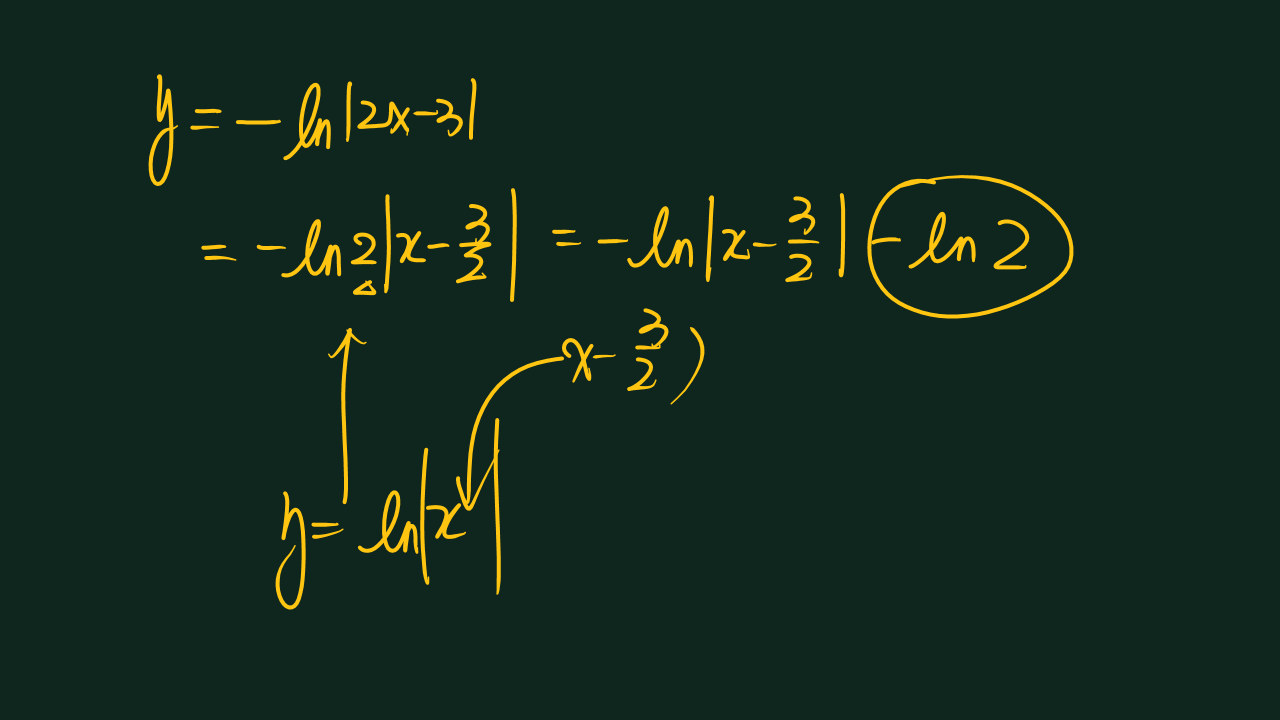 y = - ln|2x-3|
= - ln 2|x - 3/2| = - ln|x - 3/2| - ln 2
x - 3/2)
y = ln|x|